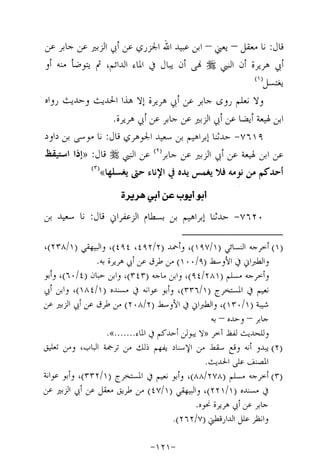 قال: نا معقل – يعني – ابن عبيد الله الجزري عن أبي الزبير عن جابر عن
أبي هريرة أن النبي ﷺ نهى أن يبال في الماء الدائم، ثم يتوضأ منه أو
يغتسل(١)
ولا نعلم روى جابر عن أبي هريرة إلا هذا الحديث وحديث رواه
ابن لهيعة أيضا عن أبي الزبير عن جابر عن أبي هريرة.
٧٦١٩- حدثنا إبراهيم بن سعيد الجوهري قال: نا موسى بن داود
عن ابن لهيعة عن أبي الزبير عن جابر(٢) عن النبي ﷺ قال: «إذا استيقظ
أحدكم من نومه فلا يغمس يده في الإناء حتى يغسلها»(٣)
أبو أيوب عن أبي هريرة
٧٦٢٠- حدثنا إبراهيم بن بسطام الزعفراني قال: نا سعيد بن
(١) أخرجه النسائي (١/١٩٧)، وأحمد (٢/٤٩٢، ٤٩٤)، والبيهقي (١/٢٣٨)،
والطبراني في الأوسط (٩/١٠٠) من طرق عن أبي هريرة به.
وأخرجه مسلم (٩٤/٢٨١)، وابن ماجه (٣٤٣)، وابن حبان (٤/٦٠)، وأبو
نعيم في المستخرج (١/٣٣٦)، وأبو عوانه في مسنده (١/١٨٤)، وابن أبي
شيبة (١/١٣٠)، والطبراني في الأوسط (٢/٢٠٨) من طرق عن أبي الزبير عن
جابر – وحده – به
وللحديث لفظ آخر «لا يبولن أحدكم في الماء.......».
(٢) يبدو أنه وقع سقط من الإسناد يفهم ذلك من ترجمة الباب، ومن تعليق
المصنف على الحديث.
(٣) أخرجه مسلم (٨٨/٢٧٨)، وأبو نعيم في المستخرج (١/٣٣٢)، وأبو عوانة
في مسنده (١/٢٢١)، والبيهقي (١/٤٧) من طريق معقل عن أبي الزبير عن
جابر عن أبي هريرة نحوه.
وانظر علل الدارقطني (٧/٢٦٢).
-١٢١-